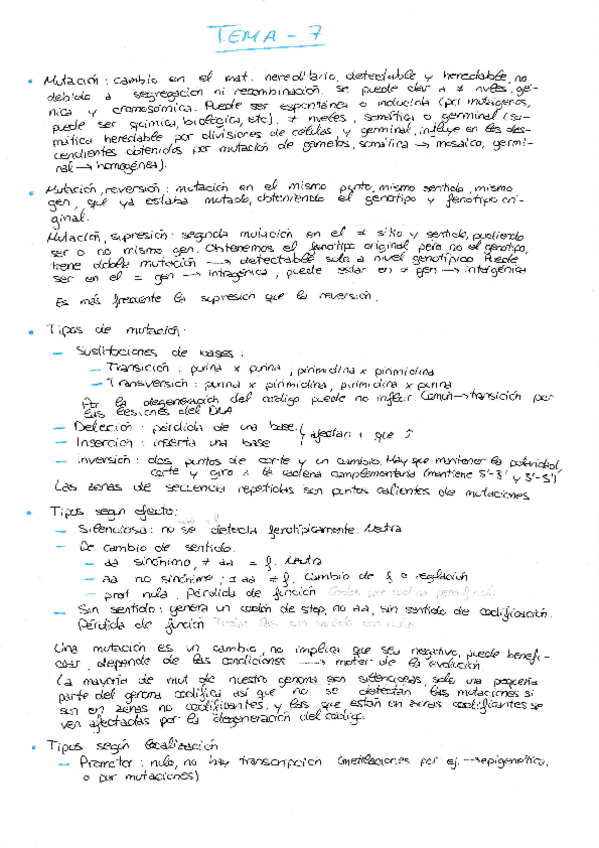 TEMA - 7
• Mutación: cambio en el mat. hereditario, detectable y heredable, no
debido a segregación ni recombinación. Se puede dar a ≠ niveles, gé-
nica y cromosómica. Puede ser espontánea o inducida (por mutágenos,
puede ser química, biológica, etc). ≠ niveles, somática o germinal (so-
mática heredable por divisiones de células, y germinal, influye en los des-
cendientes obtenidos por mutación de gametos, somática → mosaico, germi-
nal → homogénea).
• Mutación, reversión: mutación en el mismo punto, mismo sentido, mismo
gen, que ya estaba mutado, obteniendo el genotipo y fenotipo ori-
ginal.
Mutación, supresión: segunda mutación en el ≠ sitio y sentido, pudiendo
ser o no mismo gen. Obtenemos el fenotipo original pero no el genotipo,
tiene doble mutación → detectable solo a nivel genotípico. Puede
ser en el = gen → intragénica, puede estar en ≠ gen → intergénica
Es más frecuente la supresión que la reversión.
• Tipos de mutación:
– Sustituciones de bases:
– Transición: purina x purina; pirimidina x pirimidina
– Transversión: purina x pirimidina, pirimidina x purina
Por la degeneración del código puede no influir. Común → transición por
las lesiones del DNA
– Deleción: pérdida de una base
– Inserción: inserta una base } afectan + que ↑
– Inversión: dos puntos de corte y un cambio. Hay que mantener la polaridad,
corte y giro a la cadena complementaria (mantiene 5'-3' y 3'-5')
Las zonas de secuencia repetidas son puntos calientes de mutaciones
• Tipos según efecto:
– Silenciosa: no se detecta fenotípicamente. Neutra
– De cambio de sentido.
– aa sinónimo, ≠ aa = f. Neutra
– aa no sinónimo, ≠ aa ≠ f. Cambio de f o regulación
– prot nula. Pérdida de función
– Sin sentido: genera un codón de stop, no aa, sin sentido de codificación.
Pérdida de función
Una mutación es un cambio, no implica que sea negativo, puede benefi-
ciar, depende de las condiciones → motor de la evolución
La mayoría de mut de nuestro genoma son silenciosas, solo una pequeña
parte del genoma codifica así que no se detectan las mutaciones si
son en zonas no codificantes, y las que están en zonas codificantes se
ven afectadas por la degeneración del código.
• Tipos según localización
– Promotor: nula, no hay transcripción (metilaciones por ej. → epigenética,
o por mutaciones)